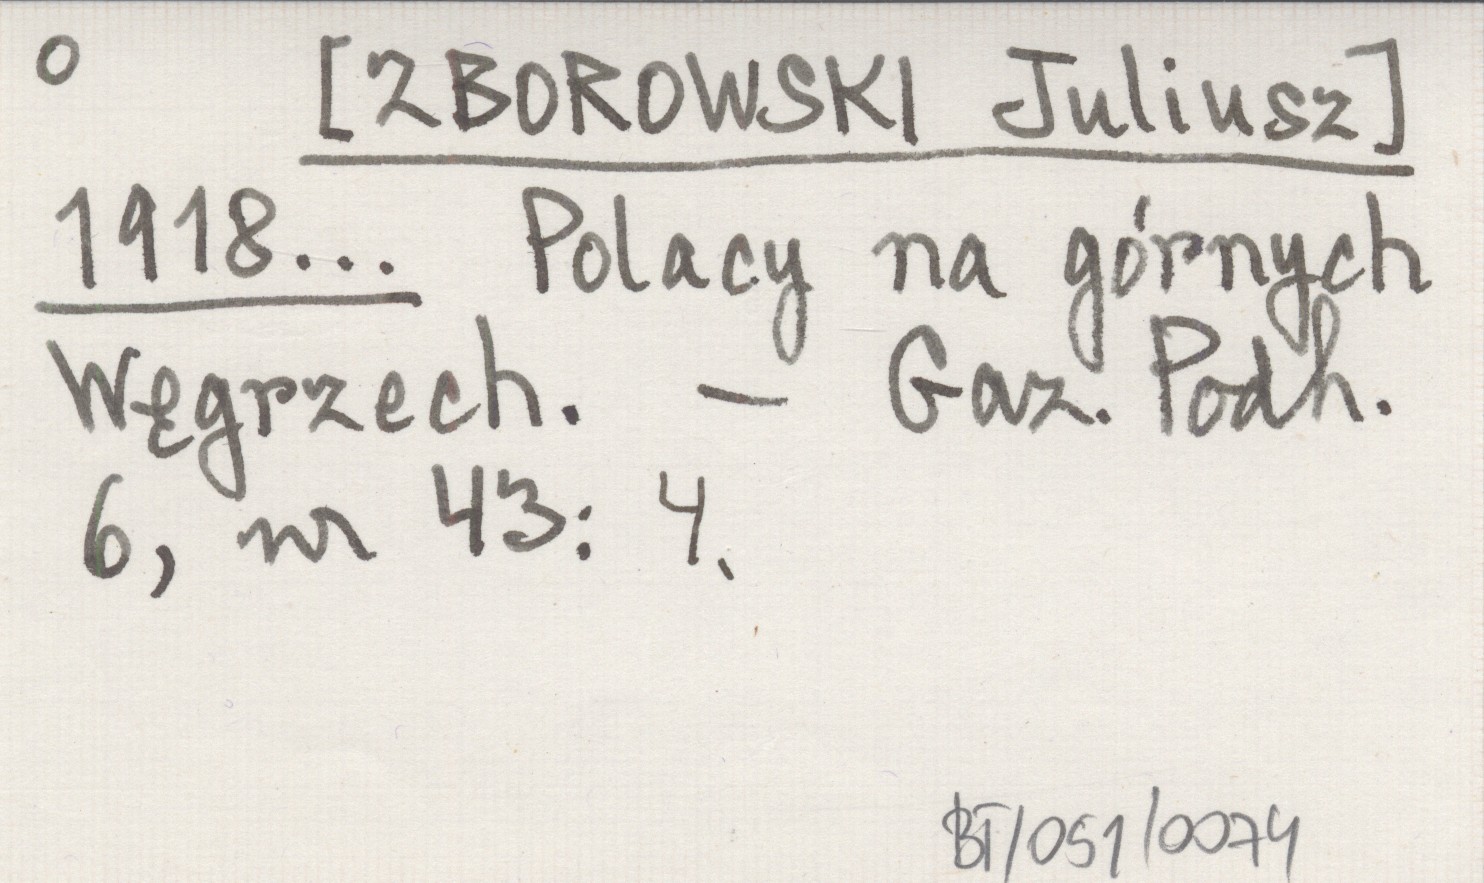 o [ZBOROWSKI Juliusz]
1918... Polacy na górnych
Węgrzech. – Gaz. Podh.
6, nr 43: 4.
BT/051/0074